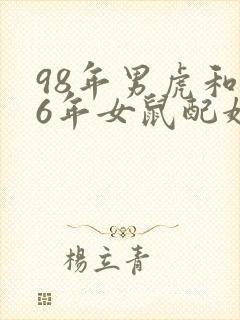 98年男虎和
6年女鼠配
楊立青